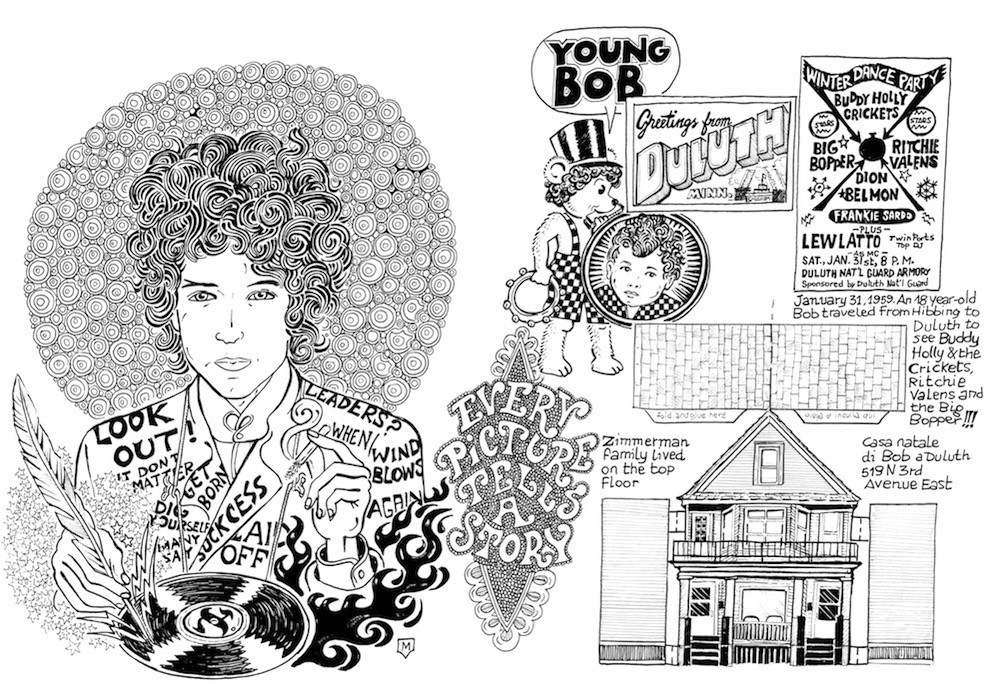 LOOK
OUT!
IT DON'T
MATTER
GET
BORN
DIG
YOURSELF
MANY
SAY
SUCKCESS
LAI
OFF
LEADERS?
WHEN
WIND
BLOWS
AGAIN
M
EVERY
PICTURE
TELLS
A
STORY
YOUNG
BOB
Greetings from
DULUTH
MINN.
WINTER DANCE PARTY
BUDDY HOLLY
CRICKETS
STARS
STARS
BIG
BOPPER
RITCHIE
VALENS
DION
BELMON
FRANKIE SARDO
-PLUS-
LEW LATTO Twin Ports
Top DJ
AS MC
SAT., JAN. 31st, 8 P.M.
DULUTH NAT'L GUARD ARMORY
Sponsored by Duluth Nat'l Guard
January 31, 1959. An 18 year-old
Bob traveled from Hibbing to
Duluth to
see Buddy
Holly & the
Crickets,
Ritchie
Valens and
the Big
Bopper!!!
Fold and glue here
Zimmerman
family lived
on the top
Floor
Casa natale
di Bob a Duluth
519 N 3rd
Avenue East